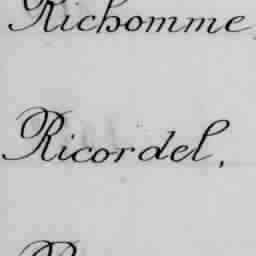 Richomme,
Ricordel,